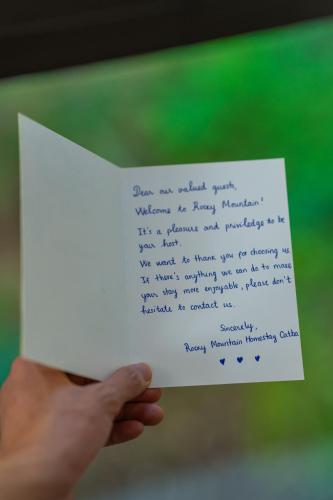 Dear our valued guests,
Welcome to Rocky Mountain!
It's a pleasure and priviledge to be
your host.
We want to thank you for choosing us
If there's anything we can do to make
your stay more enjoyable, please don't
hesitate to contact us.
Sincerely,
Rocky Mountain Homestay Catba